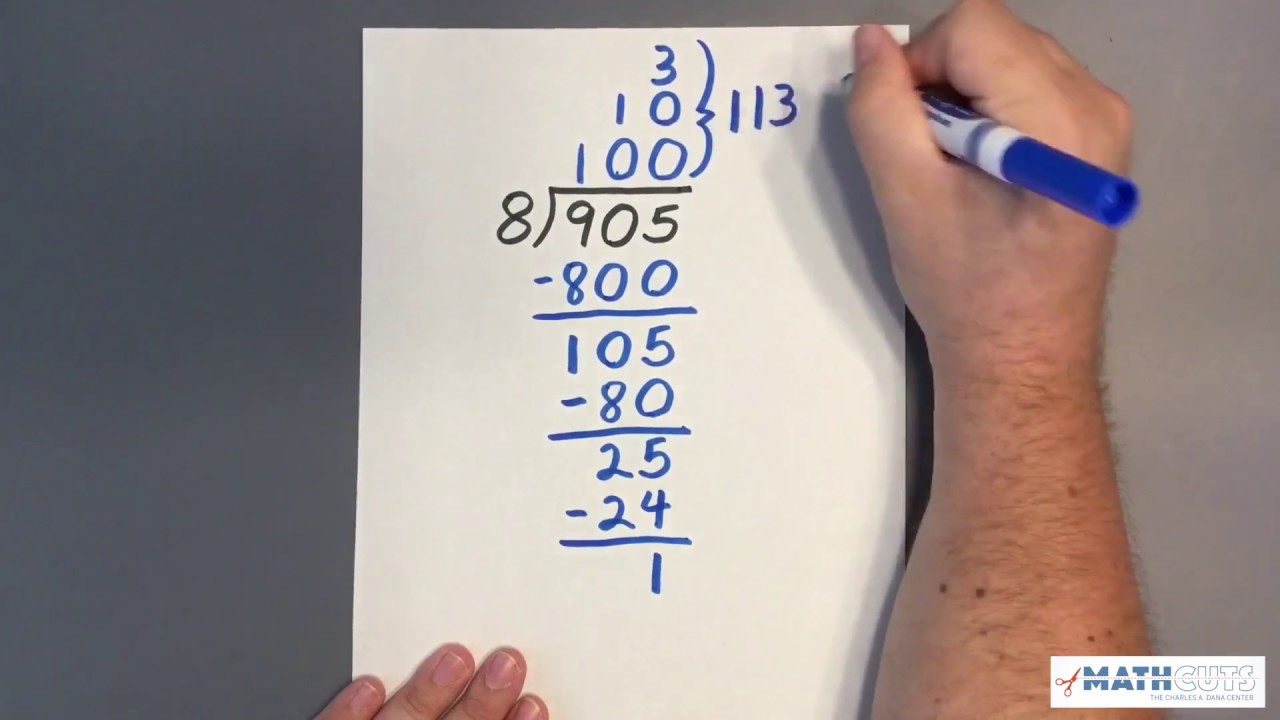 3
10
100 } 113
8)905
-800
105
-80
25
-24
1
MATHCUTS
THE CHARLES A. DANA CENTER